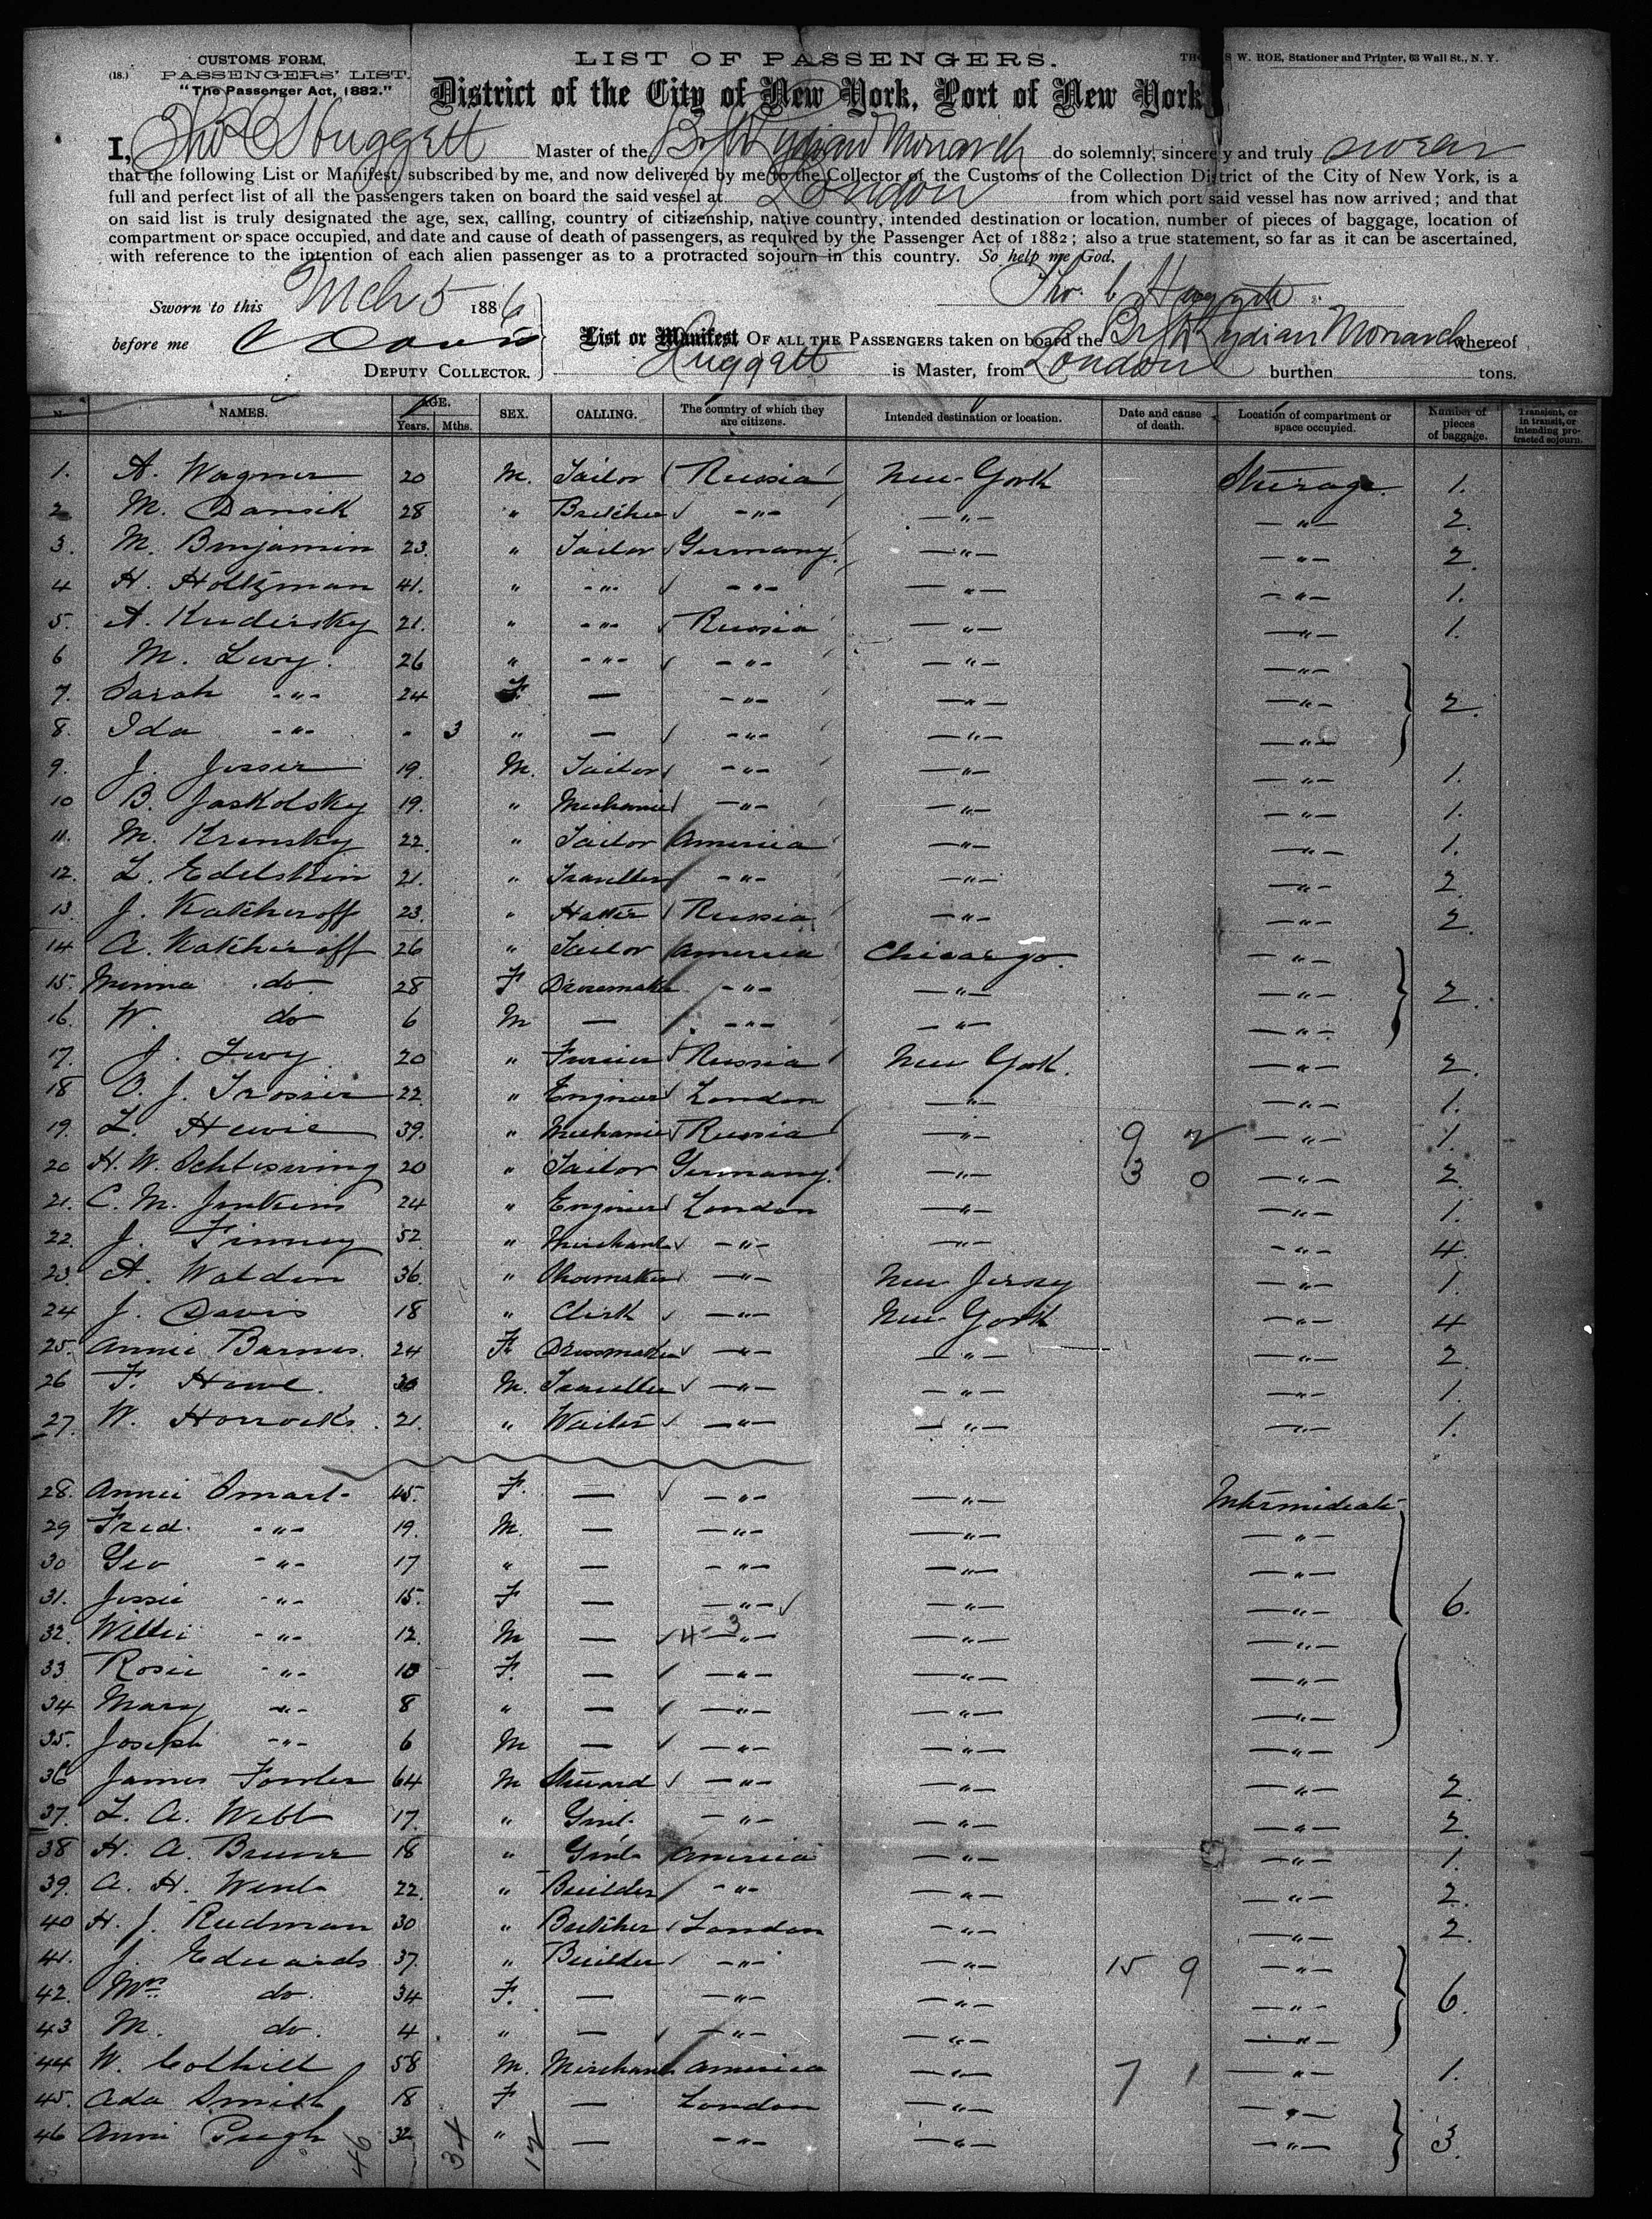 CUSTOMS FORM,
(18.) PASSENGERS' LIST.
"The Passenger Act, 1882."
LIST OF PASSENGERS.
W. ROE, Stationer and Printer, 63 Wall St., N. Y.
District of the City of New York, Port of New York
I, Thos C Huggett Master of the Br Str Lydian Monarch do solemnly, sincerely and truly swear
that the following List or Manifest, subscribed by me, and now delivered by me to the Collector of the Customs of the Collection District of the City of New York, is a
full and perfect list of all the passengers taken on board the said vessel at London from which port said vessel has now arrived; and that
on said list is truly designated the age, sex, calling, country of citizenship, native country, intended destination or location, number of pieces of baggage, location of
compartment or space occupied, and date and cause of death of passengers, as required by the Passenger Act of 1882; also a true statement, so far as it can be ascertained,
with reference to the intention of each alien passenger as to a protracted sojourn in this country. So help me God.
Thos. C Huggett
Sworn to this Mch 5 1886
before me
DEPUTY COLLECTOR.
List or Manifest OF ALL THE PASSENGERS taken on board the Br Str Lydian Monarch whereof
Huggett is Master, from London burthen tons.
No. NAMES. AGE. Years. Mths. SEX. CALLING. The country of which they are citizens. Intended destination or location. Date and cause of death. Location of compartment or space occupied. Number of pieces of baggage. Transient, or in transit, or intending protracted sojourn.
1. A. Wagner 20 M. Tailor Russia New York Steerage 1.
2 M. Dansik 28 " Butcher -"- -"- -"- 2.
3. M. Benjamin 23. " Tailor Germany -"- -"- 2.
4 H. Holtzman 41. " -"- -"- -"- -"- 1.
5. A. Kudirsky 21. " -"- Russia -"- -"- 1.
6 M. Levy. 26 " -"- -"- -"- -"-
7. Sarah -"- 24 F. — -"- -"- -"- 2.
8. Ida -"- - 3 " — -"- -"- -"-
9. J. Josser 19. M. Tailor -"- -"- -"- 1.
10 B. Jaskolsky 19. " Mechanic -"- -"- -"- 1.
11. M. Krinsky 22. " Tailor America -"- -"- 1.
12. L. Edelstein 21. " Traveller -"- -"- -"- 2.
13. J. Katcheroff 23. " Hatter Russia -"- -"- 2.
14 A. Katcheroff 26 " Tailor America Chicargo. -"-
15. Minna do 28 F Dressmaker -"- -"- -"- 2.
16. W. do 6 M — -"- -"- -"-
17. J. Levy 20 " Furrier Russia New York. -"- 2.
18 O. J. Trosser 22 " Engineer London -"- -"- 1.
19. L. Hewie 39. " Mechanic Russia -"- 9 2 -"- 1.
20 H. W. 20 " Tailor Germany. -"- 3 0 -"- 2.
21. C. M. Jenkins 24 " Engineer London -"- -"- 1.
22. J. Finney 52. " Merchant -"- -"- -"- 4.
23. A. Walden 36. " Shoemaker -"- New Jersey -"- 1.
24 J. Davis 18 " Clerk -"- New York -"- 4
25. Annie Barnes. 24 F. Dressmaker -"- -"- -"- 2.
26 F. Howe. 30 M. Traveller -"- -"- -"- 1.
27. W. Horrocks. 21. " Waiter -"- -"- -"- 1.
28. Annie Smart 45. F. — -"- -"- Intermediate
29 Fred. -"- 19. M. — -"- -"- -"-
30 Geo -"- 17 " — -"- -"- -"-
31. Jessie -"- 15. F — -"- -"- -"- 6.
32. Willie -"- 12. M — 4-3 -"- -"- -"-
33 Rosie -"- 10 F. — -"- -"- -"-
34 Mary -"- 8 " — -"- -"- -"-
35. Joseph -"- 6 M — -"- -"- -"-
36 James Fowler 64 M Steward -"- -"- -"- 2.
37. L. A. Webb 17. " Gent. -"- -"- -"- 2.
38 H. A. Bruner 18 " Gent America -"- -"- 1.
39. A. H. Went 22. " Builder -"- -"- -"- 2.
40 H. J. Rudman 30 " Butcher London -"- -"- 2.
41. J. Edwards. 37. " Builder -"- -"- 15 9 -"-
42. Mrs. do. 34 F. — -"- -"- -"- 6.
43 M. do. 4 " — -"- -"- -"-
44 W. Cothill 58 M. Merchant America -"- 7 1 -"- 1.
45. Ada Smith 18 F — London -"- -"-
46 Anni Pugh 32 " — -"- -"- -"- 3.
46 34 12